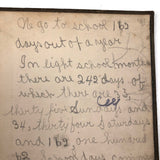 go to school 162
days out of a year
In eight school months
there are 242 days of
which there are 33,
thirty five Sunday's and
34, thirty four Saturdays
and 162 one hundred
school days